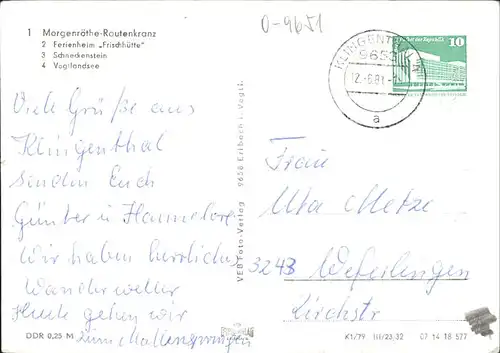 1 Morgenröthe-Rautenkranz
2 Ferienheim „Frischhütte"
3 Schneckenstein
4 Vogtlandsee
O-9651
KLINGENTHAL
9653
12.-6.81
a
10
Viele Grüße aus
Klingenthal
senden Euch
Günter u. Hannelore
Wir haben herrliches
Wanderwetter
Heute gehen wir
zum
DDR 0,25 M
VEB Foto-Verlag 9658 Erlbach i. Vogtl.
Frau
Uta Metze
3243 Weferlingen
Kirchstr
K1/79 III/23/32 07 14 18 577